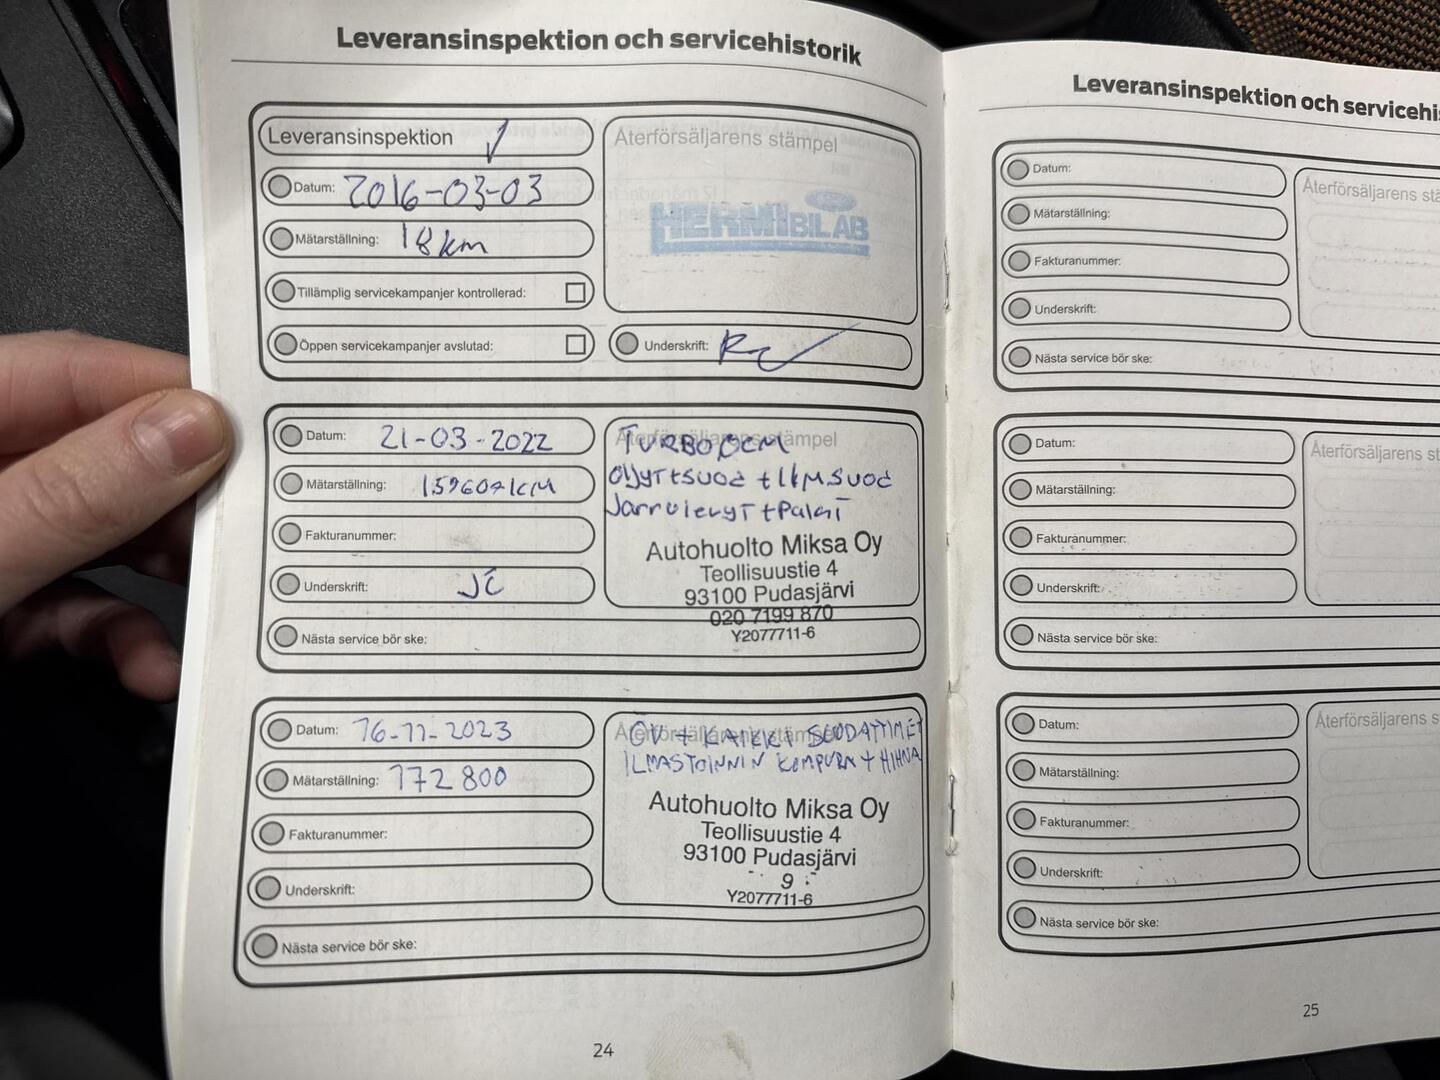 Leveransinspektion och servicehistorik
Leveransinspektion
Datum: 2016-03-03
Mätarställning: 18km
Tillämplig servicekampanjer kontrollerad:
Öppen servicekampanjer avslutad:
Återförsäljarens stämpel
Ford
HERMIBIL AB
Underskrift:
Datum: 21-03-2022
Mätarställning: 159607KM
Fakturanummer:
Underskrift: JC
Nästa service bör ske:
Återförsäljarens stämpel
TURBO OEM
ÖljyT+SUOd + ILKMSUOd
JarrulevyT+PalaT
Autohuolto Miksa Oy
Teollisuustie 4
93100 Pudasjärvi
020 7199 870
Y2077711-6
Datum: 16-11-2023
Mätarställning: 172800
Fakturanummer:
Underskrift:
Nästa service bör ske:
Återförsäljarens stämpel
ÖV + KAIKKI SUODATTIMET
ILMASTOINNIN KOMPURA + HIHNA
Autohuolto Miksa Oy
Teollisuustie 4
93100 Pudasjärvi
9
Y2077711-6
24
Leveransinspektion och servicehi
Datum:
Mätarställning:
Fakturanummer:
Underskrift:
Nästa service bör ske:
Återförsäljarens stä
Datum:
Mätarställning:
Fakturanummer:
Underskrift:
Nästa service bör ske:
Återförsäljarens st
Datum:
Mätarställning:
Fakturanummer:
Underskrift:
Nästa service bör ske:
Återförsäljarens s
25